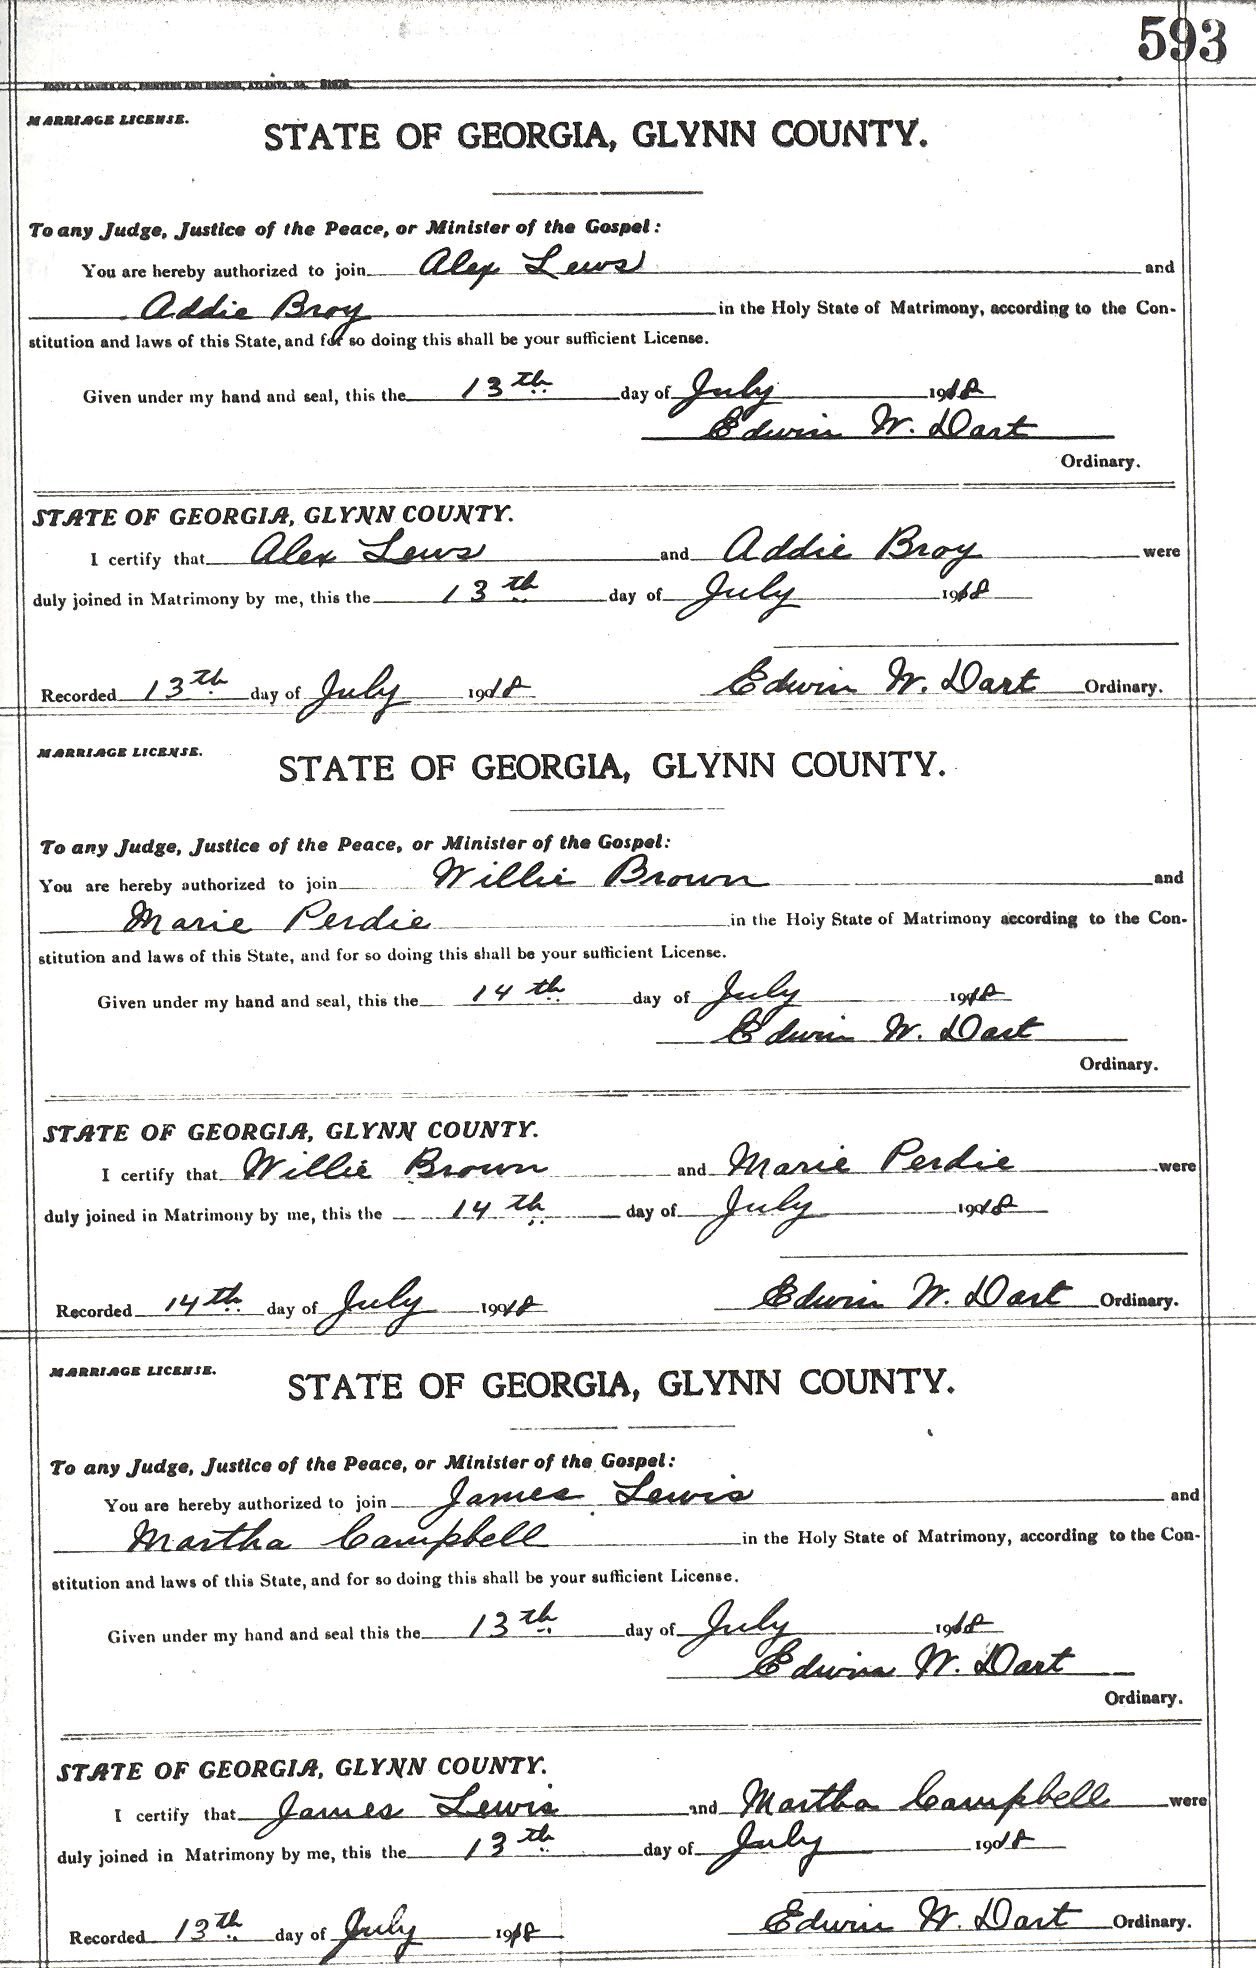 593
FOOTE & DAVIES CO., PRINTERS AND BINDERS, ATLANTA, GA.
MARRIAGE LICENSE.
STATE OF GEORGIA, GLYNN COUNTY.
To any Judge, Justice of the Peace, or Minister of the Gospel:
You are hereby authorized to join Alex Lews and
Addie Broy in the Holy State of Matrimony, according to the Con-
stitution and laws of this State, and for so doing this shall be your sufficient License.
Given under my hand and seal, this the 13th day of July 1918
Edwin W. Dart
Ordinary.
STATE OF GEORGIA, GLYNN COUNTY.
I certify that Alex Lews and Addie Broy were
duly joined in Matrimony by me, this the 13th day of July 1918
Recorded 13th day of July 1918 Edwin W. Dart Ordinary.
MARRIAGE LICENSE.
STATE OF GEORGIA, GLYNN COUNTY.
To any Judge, Justice of the Peace, or Minister of the Gospel:
You are hereby authorized to join Willie Brown and
Marie Perdie in the Holy State of Matrimony according to the Con-
stitution and laws of this State, and for so doing this shall be your sufficient License.
Given under my hand and seal, this the 14th day of July 1918
Edwin W. Dart
Ordinary.
STATE OF GEORGIA, GLYNN COUNTY.
I certify that Willie Brown and Marie Perdie were
duly joined in Matrimony by me, this the 14th day of July 1918
Recorded 14th day of July 1918 Edwin W. Dart Ordinary.
MARRIAGE LICENSE.
STATE OF GEORGIA, GLYNN COUNTY.
To any Judge, Justice of the Peace, or Minister of the Gospel:
You are hereby authorized to join James Lewis and
Martha Campbell in the Holy State of Matrimony, according to the Con-
stitution and laws of this State, and for so doing this shall be your sufficient License.
Given under my hand and seal this the 13th day of July 1918
Edwin W. Dart
Ordinary.
STATE OF GEORGIA, GLYNN COUNTY.
I certify that James Lewis and Martha Campbell were
duly joined in Matrimony by me, this the 13th day of July 1918
Recorded 13th day of July 1918 Edwin W. Dart Ordinary.